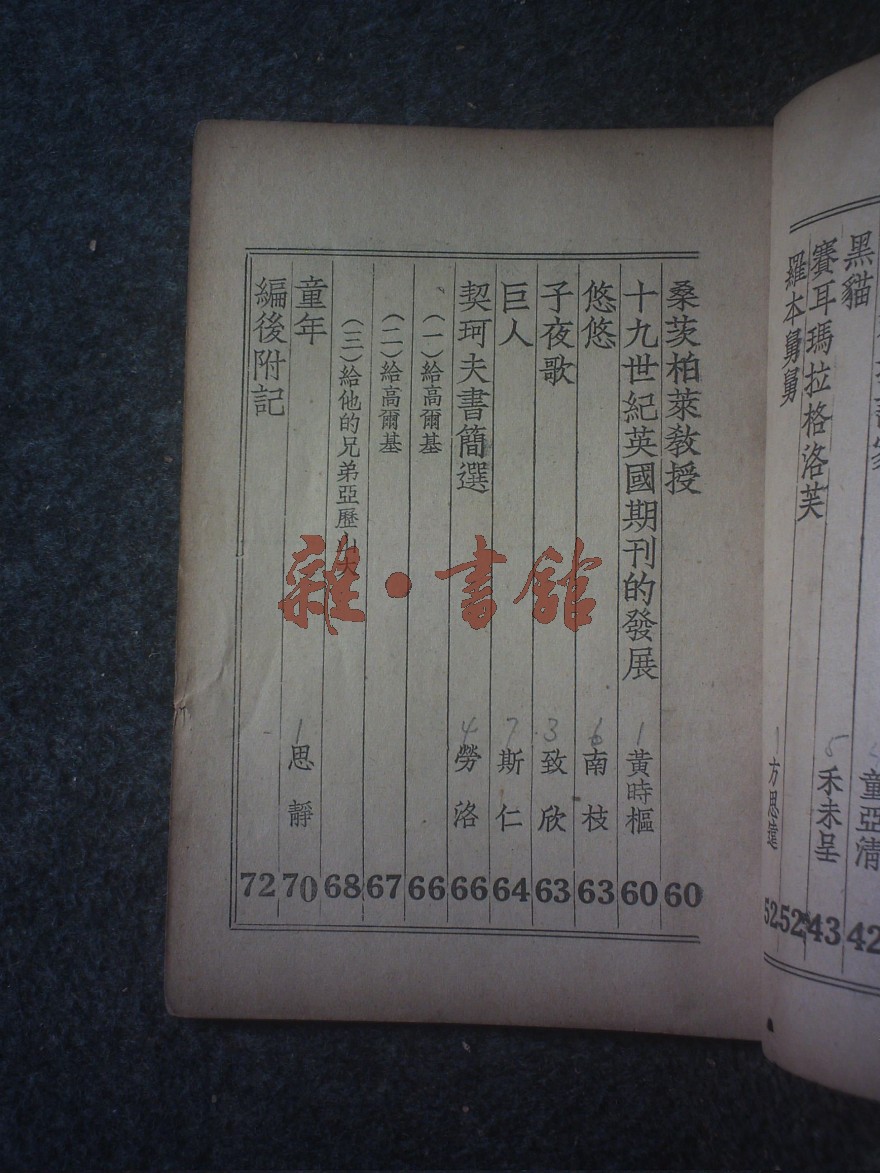 黑貓
童亞清 42
賽耳瑪拉格洛芙
禾未呈 43
羅本舅舅
52
方思達 52
桑茨柏萊教授 60
十九世紀英國期刊的發展 1 黃時樞 60
悠悠 6 南枝 63
子夜歌 3 致欣 63
巨人 7 斯仁 64
契珂夫書簡選 4 勞洛 66
(一)給高爾基 66
(二)給高爾基 67
(三)給他的兄弟亞歷山大 68
童年 1 思靜 70
編後附記 72
雜·書館